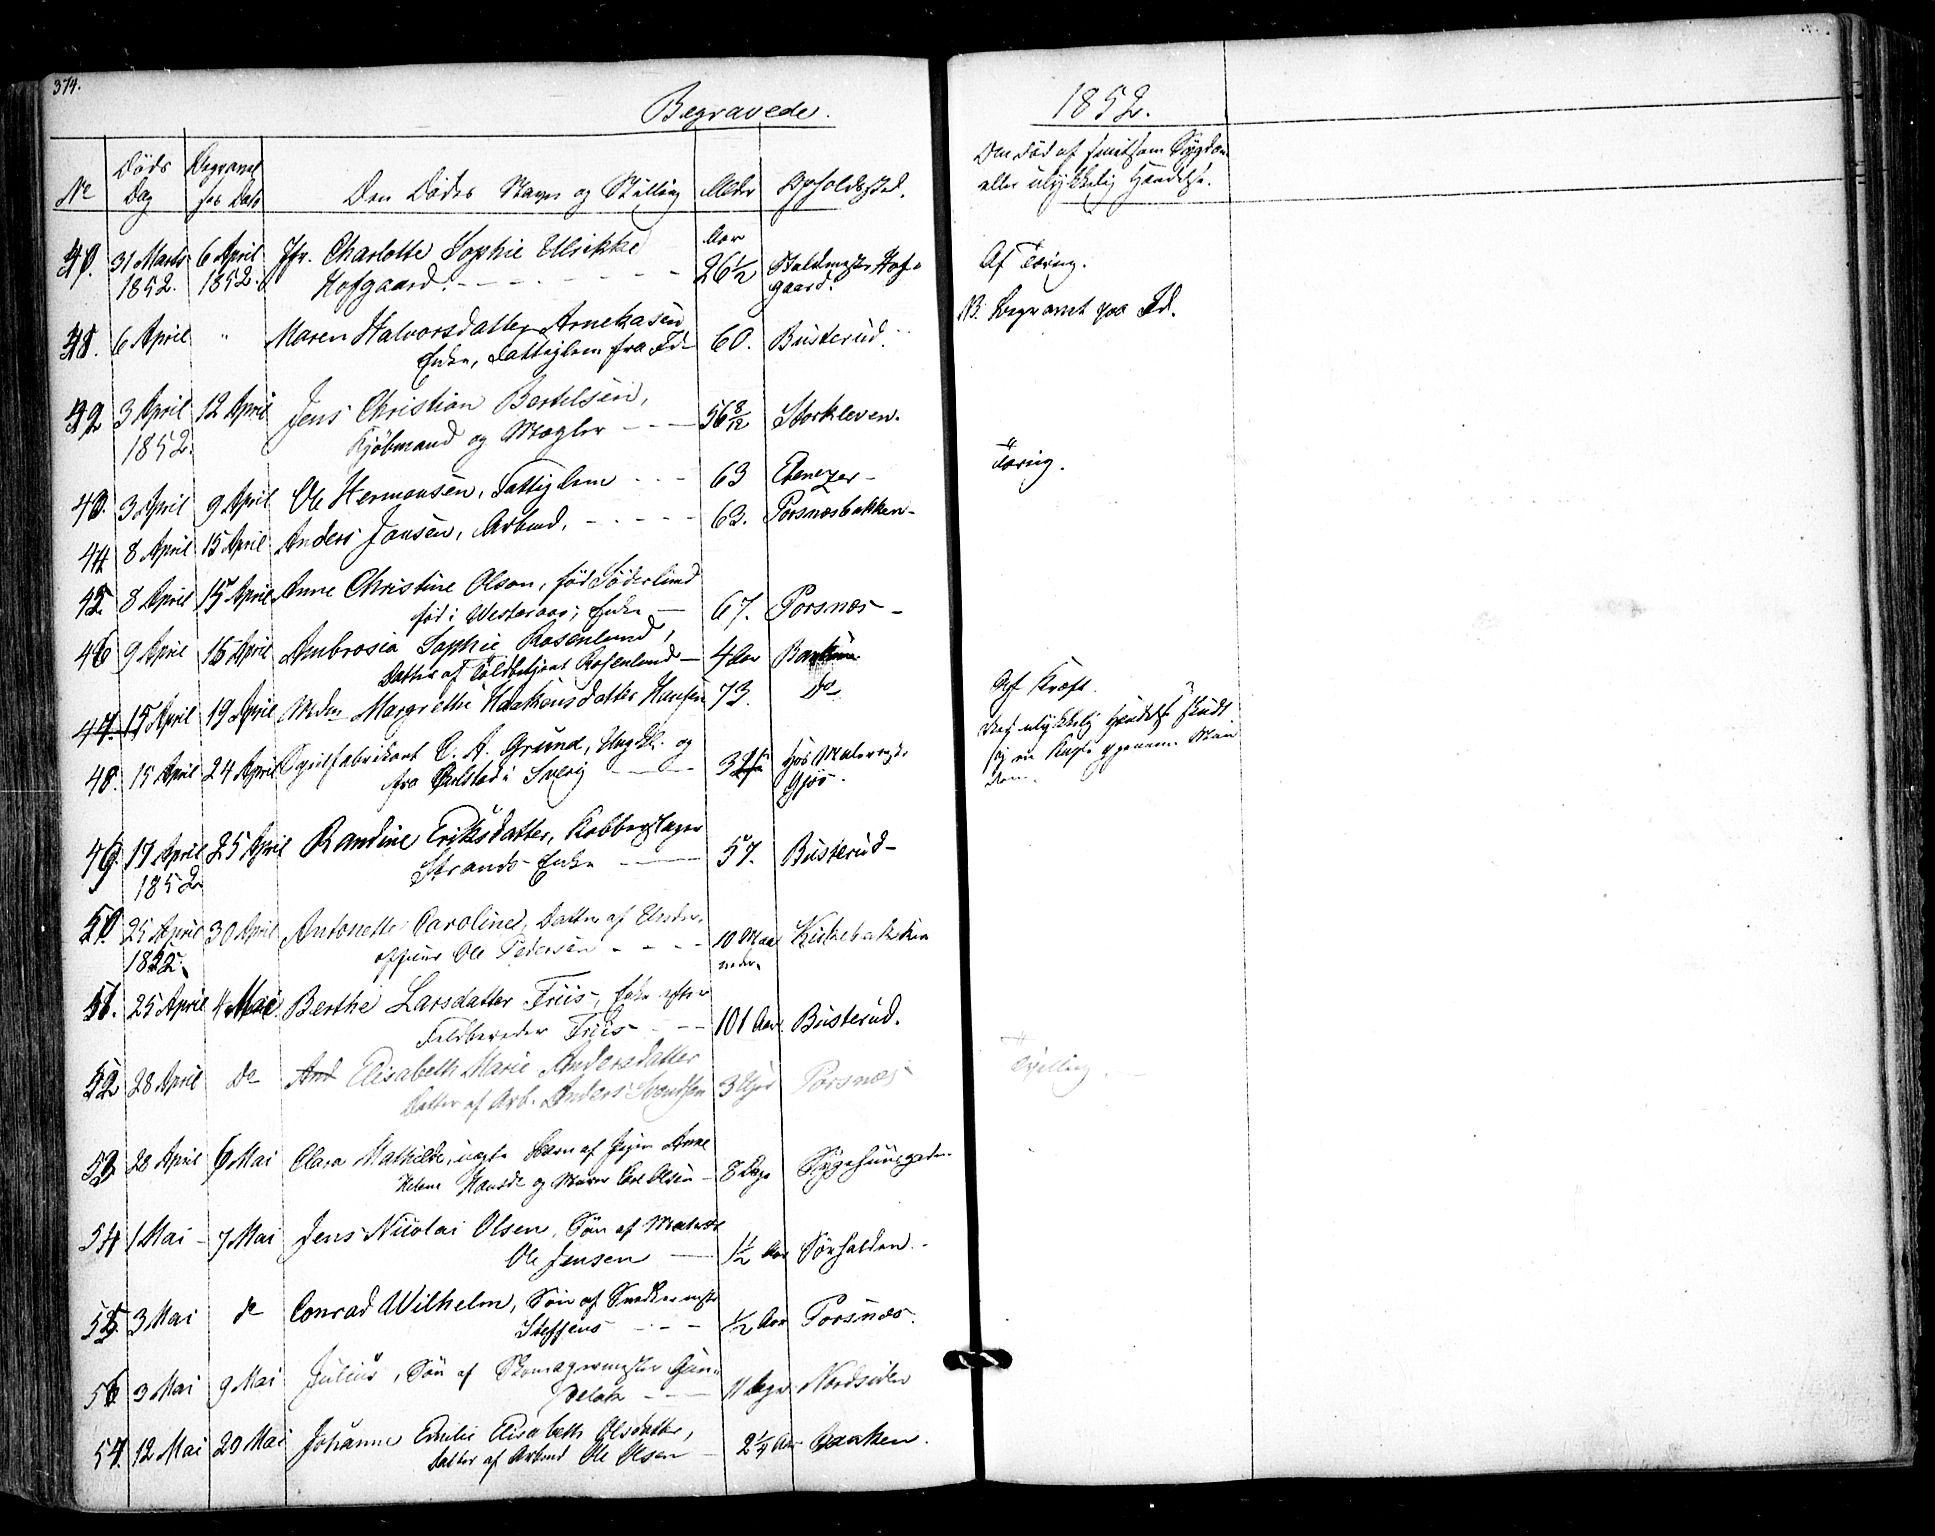 374.
Begravede.
1852.
No
Døds Dag
Begravel ses Dato
Den Dødes Navn og Stilling
Alder
Opholdsted.
Om død af smitsom Sygdom
eller ulykkelig Hændelse.
Aar
31 Marts 6 April Jfr. Charlotte Sophie Ulrikke
1852. 1852. Hofgaard. 26 1/2 Hof-
gaard.
Af Tæring.
6 April " Maren Halvorsdatter Arnekasen
Enke, Fattiglem fra Id 60. Busterud.
NB. Begravet paa Id.
3 April 12 April Jens Christian Bertelsen,
1852. Kjöbmand og Mægler 56 8/12 Storkleven.
Tæring.
3 April 9 April Ole Hermansen, Fattiglem 63 Ebenezer
44 8 April 15 April Anders Jansen, Arbmd. 63. Porsnæsbakken
45 8 April 15 April Anne Christine Olson, fød Söderlund
fød i Westeraas, Enke 67. Porsnæs
46 9 April 16 April Ambrosia Sophie Rosenlund,
Datter af Toldbetjent Rosenlund 4 Aar Banken
47. 15 April 19 April Mdm Margrethe Haakensdatter Hansen 73. Do
Af Kræft.
48. 15 April 24 April fabrikant C. A. Grund, Ungkl. og
fra Carlstad i Sverig 32 hos Malermester
Gjös.
Ved ulykkelig Hændelse skudt
sig en Kugle gjennem Mun
den.
49. 17 April 25 April Randine Eriksdatter, Kobberslager
1852 Strands Enke 57. Busterud
50. 25 April 30 April Antonette Caroline, Datter af Under-
1852. officier Ole Pedersen 10 Maa
neder. Kirkebakken
51. 25 April 4 Mai Berthe Larsdatter Friis, Enke efter
Feldbereder Friis 101 Aar Busterud.
52 28 April Do And Elisabeth Marie Andersdatter
Datter af Arb. Anders Svendsen 3 Uger Porsnæs
Tvilling.
53 28 April 6 Mai Clara Mathilde, uægte Barn af Pigen Anne
Helene Hansd. og Murer Carl Olsen 8 Dage Sygehuusgaden
54 1 Mai 7 Mai Jens Nicolai Olsen, Søn af Matros
Ole Jensen 1 1/2 Aar Sörhalden.
55 3 Mai do Conrad Wilhelm, Søn af Snedkermester
Steffens 1/2 Aar Porsnæs.
56 3 Mai 9 Mai Julius, Søn af Skomagermester
11 Dage Nordsiden
57. 12 Mai 20 Mai Johanne Emilie Elisabeth Olsdatter,
Datter af Arbmd Ole Olsen 2 1/4 Aar Banken.